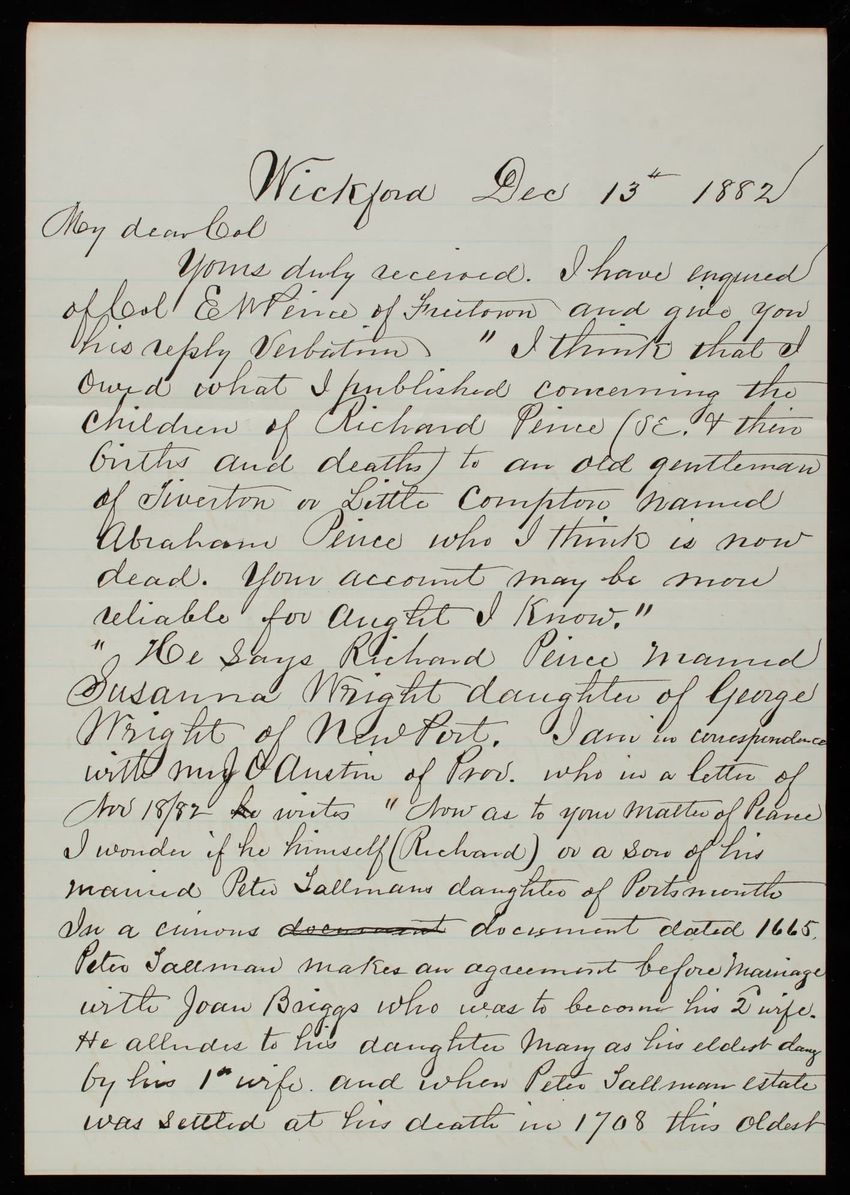 Wickford Dec 13th 1882
My dear Col
Yours duly received. I have enquired
of Col E W Peirce of Freetown and give you
his reply Verbatim " I think that I
owed what I published concerning the
children of Richard Peirce (&c. & their
births and deaths) to an old gentleman
of Tiverton or Little Compton named
Abraham Peirce who I think is now
dead. Your account may be more
reliable for aught I know."
" He says Richard Peirce married
Susanna Wright daughter of George
Wright of NewPort. I am in correspondence
with Mr J O Austin of Prov. who in a letter of
Nov 18/82 he writes " Now as to your matter of Pearce
I wonder if he himself (Richard) or a son of his
married Peter Tallmans daughter of Portsmouth
In a curious document document dated 1665.
Peter Tallman makes an agreement before Marriage
with Joan Briggs who was to become his 2d wife.
He alludes to his daughter Mary as his eldest daug
by his 1st wife. and when Peter Tallman estate
was settled at his death in 1708 this oldest